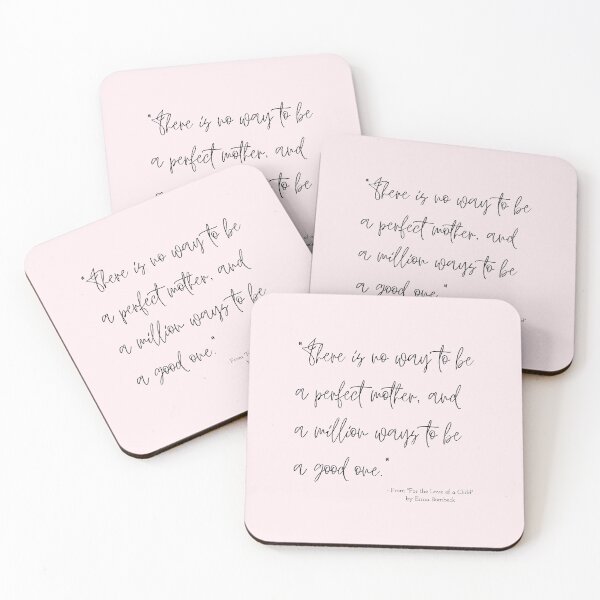 "There is no way to be
a perfect mother, and
to be
"There is no way to be
a perfect mother, and
a million ways to be
a good one."
"There is no way to be
a perfect mother, and
a million ways to be
a good one."
- From
"There is no way to be
a perfect mother, and
a million ways to be
a good one."
- From "For the Love of a Child"
by Erma Bombeck